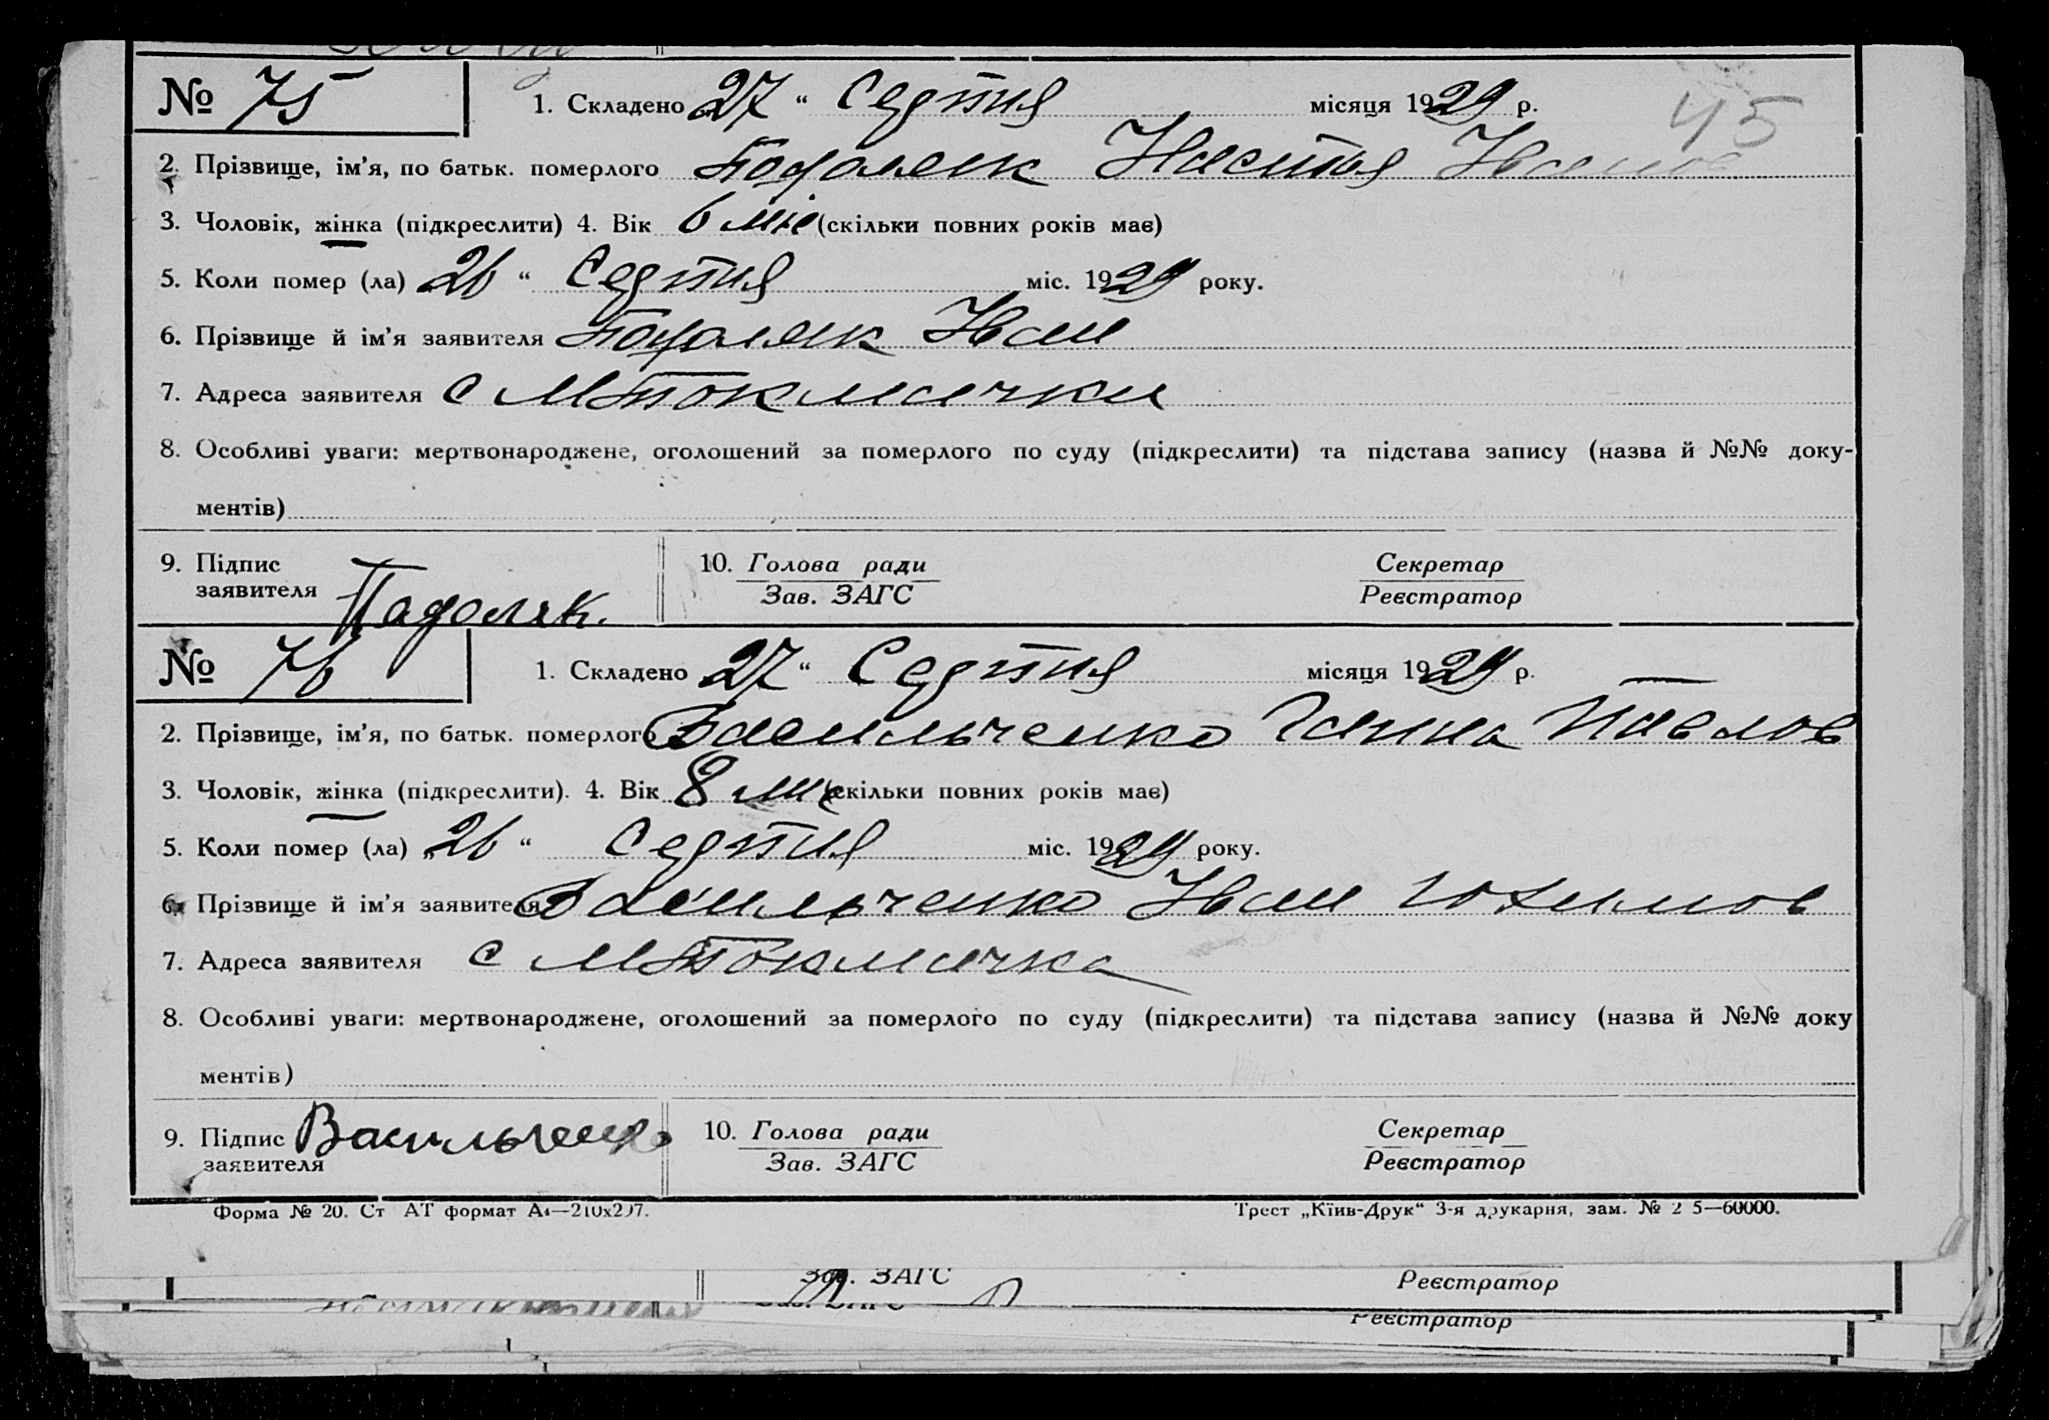 № 75 1. Складено „27“ Серпня місяця 1929 р. 45
2. Прізвище, ім'я, по батьк. померлого Подоляк Настя Іванов
3. Чоловік, жінка (підкреслити) 4. Вік 6 міс (скільки повних років має)
5. Коли помер (ла) 26 “ Серпня міс. 1929 року.
6. Прізвище й ім'я заявителя Подоляк Іван
7. Адреса заявителя с МТокмачки
8. Особливі уваги: мертвонароджене, оголошений за померлого по суду (підкреслити) та підстава запису (назва й №№ доку-
ментів)
9. Підпис 10. Голова ради Секретар
заявителя Падоляк. Зав. ЗАГС Реєстратор
№ 76 1. Складено 27 “ Серпня місяця 1929 р.
2. Прізвище, ім'я, по батьк. померлого Васильченко Ганна Павлов
3. Чоловік, жінка (підкреслити). 4. Вік 8 міс (скільки повних років має)
5. Коли помер (ла) „26 “ Серпня міс. 1929 року
6. Прізвище й ім'я заявителя Васильченко Іван Юхимов
7. Адреса заявителя с МТокмачка
8. Особливі уваги: мертвонароджене, оголошений за померлого по суду (підкреслити) та підстава запису (назва й №№ доку
ментів)
9. Підпис Васильченко 10. Голова ради Секретар
заявителя Зав. ЗАГС Реєстратор
Форма № 20. Ст АТ формат А4—210х297. Трест „Київ-Друк“ 3-я друкарня, зам. № 2 5—60000.
Зав. ЗАГС Реєстратор
Реєстратор